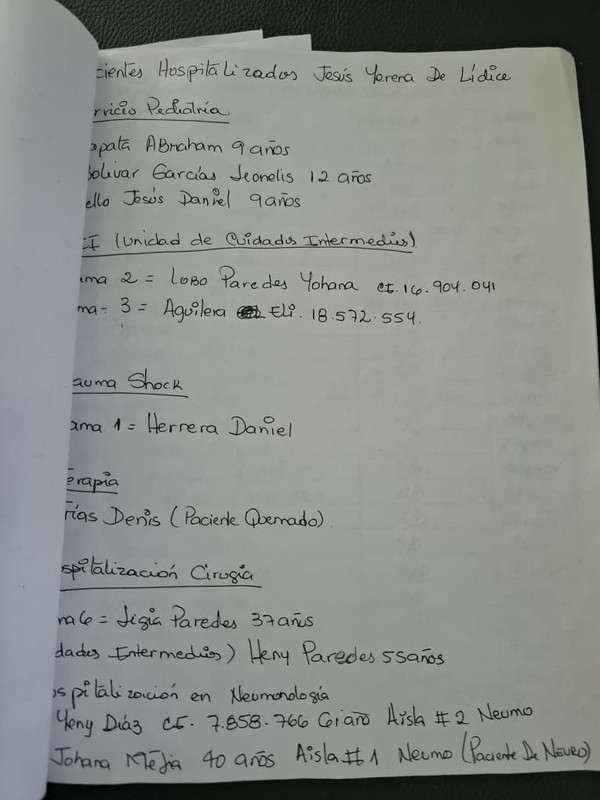 cientes Hospitalizados Jesús Yerena De Lídice
rvicio Pediatría
apata Abraham 9 años
Bolivar Garcías Leonelis 12 años
ello Jesús Daniel 9 años
CI (Unidad de Cuidados Intermedios)
ama 2 = Lobo Paredes Yohana CI. 16.904.041
ma- 3 = Aguilera Eli. 18.572.554.
auma Shock
ama 1 = Herrera Daniel
erapia
rías Denis (Paciente Quemado).
spitalización Cirugía
ma 6 = Ligia Paredes 37 años
dados Intermedios) Heny Paredes 55 años
ospitalización en Neumonología
Yeny Díaz CI. 7.858.766 61 año Aisla #2 Neumo
Johana Mejia 40 años Aisla #1 Neumo (Paciente De Neuro)